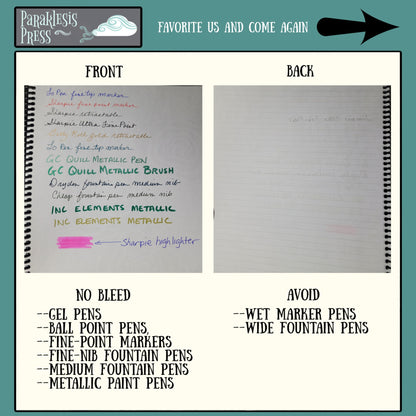 Paraklesis
Press
FAVORITE US AND COME AGAIN
FRONT
Le Pen fine tip marker
Sharpie fine point marker
Sharpie retractable
Sharpie Ultra Fine Point
gold retractable
Le Pen fine tip marker
GC QUILL METALLIC PEN
GC QUILL METALLIC BRUSH
Dryden fountain pen medium nib
Cheap fountain pen medium nib
INC ELEMENTS METALLIC
INC ELEMENTS METALLIC
Sharpie highlighter
NO BLEED
--GEL PENS
--BALL POINT PENS,
--FINE-POINT MARKERS
--FINE-NIB FOUNTAIN PENS
--MEDIUM FOUNTAIN PENS
--METALLIC PAINT PENS
BACK
AVOID
--WET MARKER PENS
--WIDE FOUNTAIN PENS